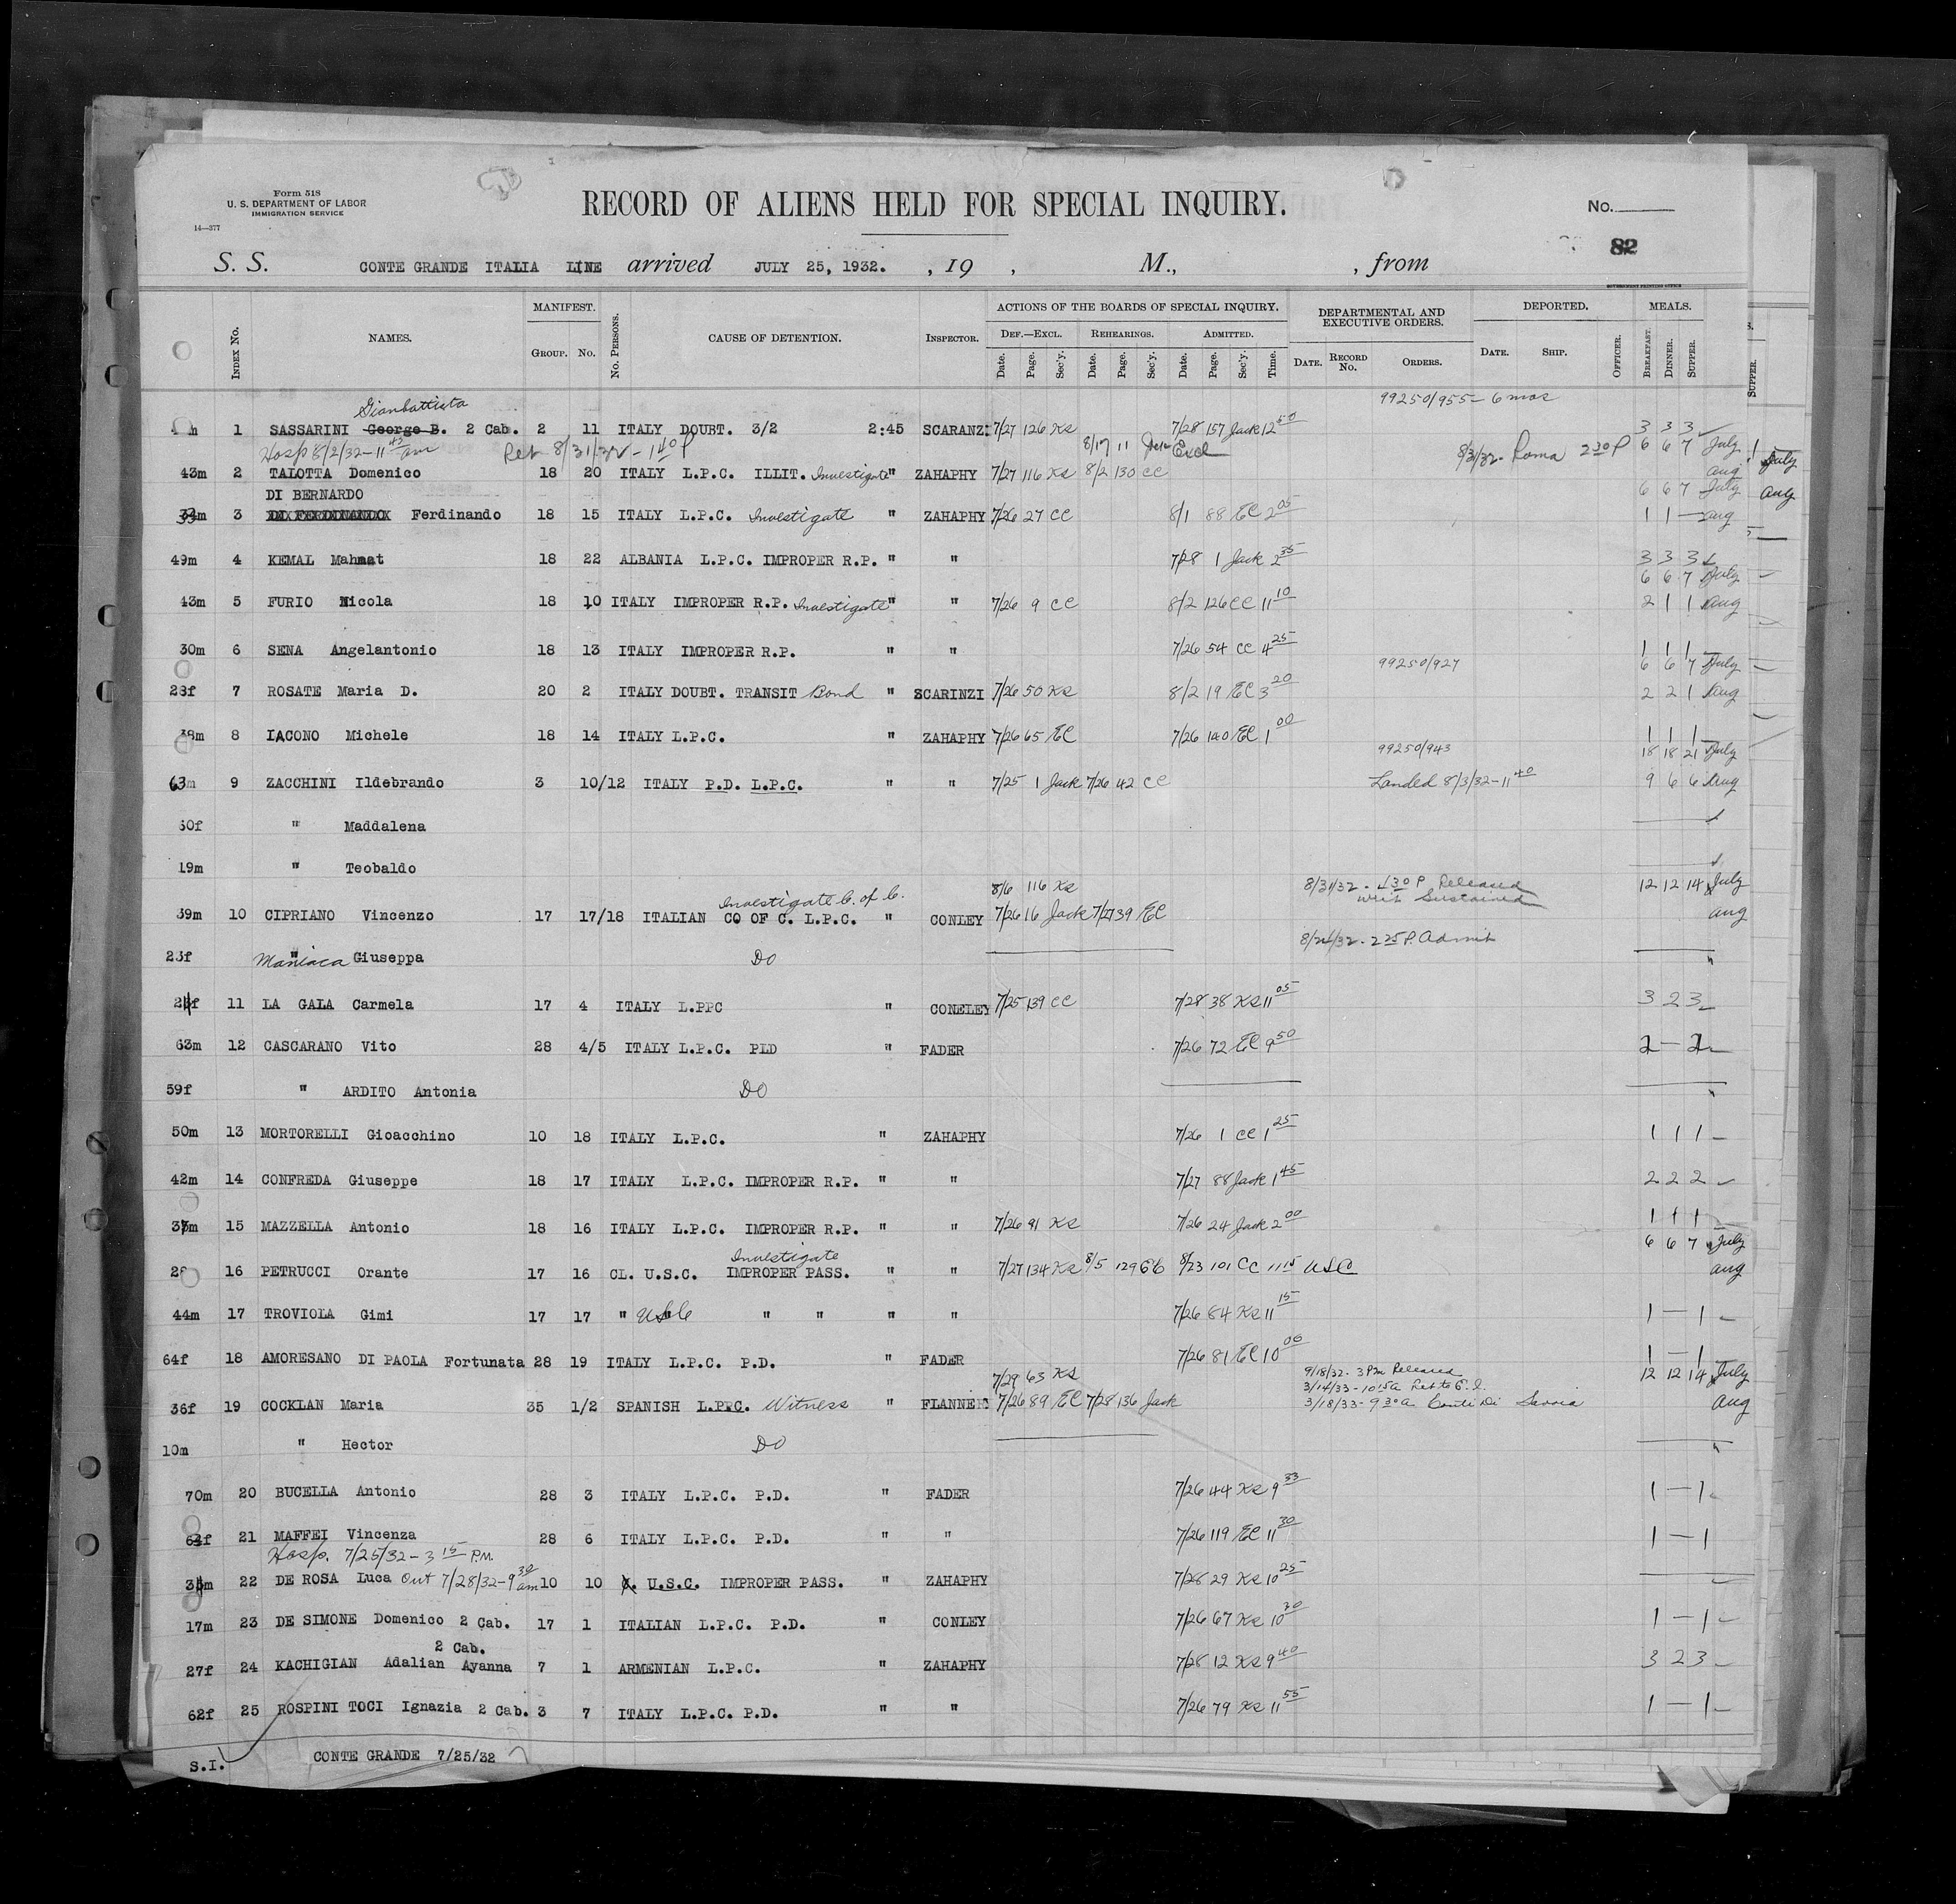 Form 518
U. S. DEPARTMENT OF LABOR
IMMIGRATION SERVICE
14—377
RECORD OF ALIENS HELD FOR SPECIAL INQUIRY.
No.
82
S. S. CONTE GRANDE ITALIA LINE arrived JULY 25, 1932. , 19 , M., , from
GOVERNMENT PRINTING OFFICE
Index No. NAMES. MANIFEST. Group. No. No. Persons. CAUSE OF DETENTION. Inspector. ACTIONS OF THE BOARDS OF SPECIAL INQUIRY. Def.—Excl. Date. Page. Sec'y. Rehearings. Date. Page. Sec'y. Admitted. Date. Page. Sec'y. Time. DEPARTMENTAL AND EXECUTIVE ORDERS. Date. Record No. Orders. DEPORTED. Date. Ship. Officer. MEALS. Breakfast. Dinner. Supper.
Supper.
Gianbattista 99250/955 - 6 mos
m 1 SASSARINI George B. 2 Cab. 2 11 ITALY DOUBT. 3/2 2:45 SCARANZI 7/27 126 Ks 7/28 157 Jack 12 50 3 3 3
Hosp 8/2/32 - 11 45 am Ret 8/31/32 - 1 40 P 8/17 11 Excl 8/31/32 - Roma 2 30 P 6 6 7 July
43m 2 TALOTTA Domenico 18 20 ITALY L.P.C. ILLIT. Investigate " ZAHAPHY 7/27 116 Ks 8/2 130 CC aug
July
DI BERNARDO 6 6 7 July
aug
33m 3 DI FERDINANDO Ferdinando 18 15 ITALY L.P.C. Investigate " ZAHAPHY 7/26 27 CC 8/1 88 EC 2 05 1 1 — aug
49m 4 KEMAL Mahmat 18 22 ALBANIA L.P.C. IMPROPER R.P. " " 7/28 1 Jack 2 35 3 3 3
6 6 7 July
43m 5 FURIO Nicola 18 10 ITALY IMPROPER R.P. Investigate " " 7/26 9 CC 8/2 126 CC 11 10 2 1 1 aug
30m 6 SENA Angelantonio 18 13 ITALY IMPROPER R.P. " " 7/26 54 CC 4 25 1 1 1
99250/927 6 6 7 July
28f 7 ROSATE Maria D. 20 2 ITALY DOUBT. TRANSIT Bond " SCARINZI 7/26 50 Ks 8/2 19 EC 3 20 2 2 1 aug
38m 8 IACONO Michele 18 14 ITALY L.P.C. " ZAHAPHY 7/26 65 EC 7/26 140 EC 1 00 1 1 1
99250/943 18 18 21 July
63m 9 ZACCHINI Ildebrando 3 10/12 ITALY P.D. L.P.C. " " 7/25 1 Jack 7/26 42 CC Landed 8/3/32 - 11 40 9 6 6 aug
60f " Maddalena
19m " Teobaldo
Investigate C. of C. 8/6 116 Ks 8/31/32 - 4 30 P Released 12 12 14 July
writ Sustained
39m 10 CIPRIANO Vincenzo 17 17/18 ITALIAN CO OF C. L.P.C. " CONLEY 7/26 16 Jack 7/27 39 EC aug
8/24/32 - 2 25 P. Admit
23f Maniaca " Giuseppa DO "
f 11 LA GALA Carmela 17 4 ITALY L.PPC " CONELEY 7/25 139 CC 7/28 38 Ks 11 05 3 2 3
63m 12 CASCARANO Vito 28 4/5 ITALY L.P.C. PLD " FADER 7/26 72 EC 9 50 2 — 2
59f " ARDITO Antonia DO "
50m 13 MORTORELLI Gioacchino 10 18 ITALY L.P.C. " ZAHAPHY 7/26 1 CC 1 25 1 1 1
42m 14 CONFREDA Giuseppe 18 17 ITALY L.P.C. IMPROPER R.P. " " 7/27 88 Jack 1 45 2 2 2
37m 15 MAZZELLA Antonio 18 16 ITALY L.P.C. IMPROPER R.P. " " 7/26 91 Ks 7/26 24 Jack 2 00 1 1 1
Investigate 6 6 7 July
28 16 PETRUCCI Orante 17 16 CL. U.S.C. IMPROPER PASS. " " 7/27 134 Ks 8/5 129 EC 8/23 101 CC 11 15 USC aug
44m 17 TROVIOLA Gimi 17 17 " USC " " " " 7/26 84 Ks 11 15 1 — 1
64f 18 AMORESANO DI PAOLA Fortunata 28 19 ITALY L.P.C. P.D. " FADER 7/26 81 EC 10 06 1 — 1
7/29 63 Ks 9/18/32 - 3 Pm Released 12 12 14 July
3/14/33 - 10 15 a Ret to E. I.
36f 19 COCKLAN Maria 35 1/2 SPANISH L.PPC. Witness " FLANNE 7/26 89 EC 7/28 136 Jack 3/18/33 - 9 30 a Conti Di Savoia aug
10m " Hector DO "
70m 20 BUCELLA Antonio 28 3 ITALY L.P.C. P.D. " FADER 7/26 44 Ks 9 33 1 — 1
64f 21 MAFFEI Vincenza 28 6 ITALY L.P.C. P.D. " " 7/26 119 EC 11 30 1 — 1
Hosp. 7/25/32 - 3 15 P.M.
m 22 DE ROSA Luca Out 7/28/32 - 9 30 am 10 10 U.S.C. IMPROPER PASS. " ZAHAPHY 7/28 29 Ks 10 25
17m 23 DE SIMONE Domenico 2 Cab. 17 1 ITALIAN L.P.C. P.D. " CONLEY 7/26 67 Ks 10 30 1 — 1
2 Cab.
27f 24 KACHIGIAN Adalian Ayanna 7 1 ARMENIAN L.P.C. " ZAHAPHY 7/28 12 Ks 9 40 3 2 3
62f 25 ROSPINI TOCI Ignazia 2 Cab. 3 7 ITALY L.P.C. P.D. " " 7/26 79 Ks 11 55 1 — 1
S.I. CONTE GRANDE 7/25/32